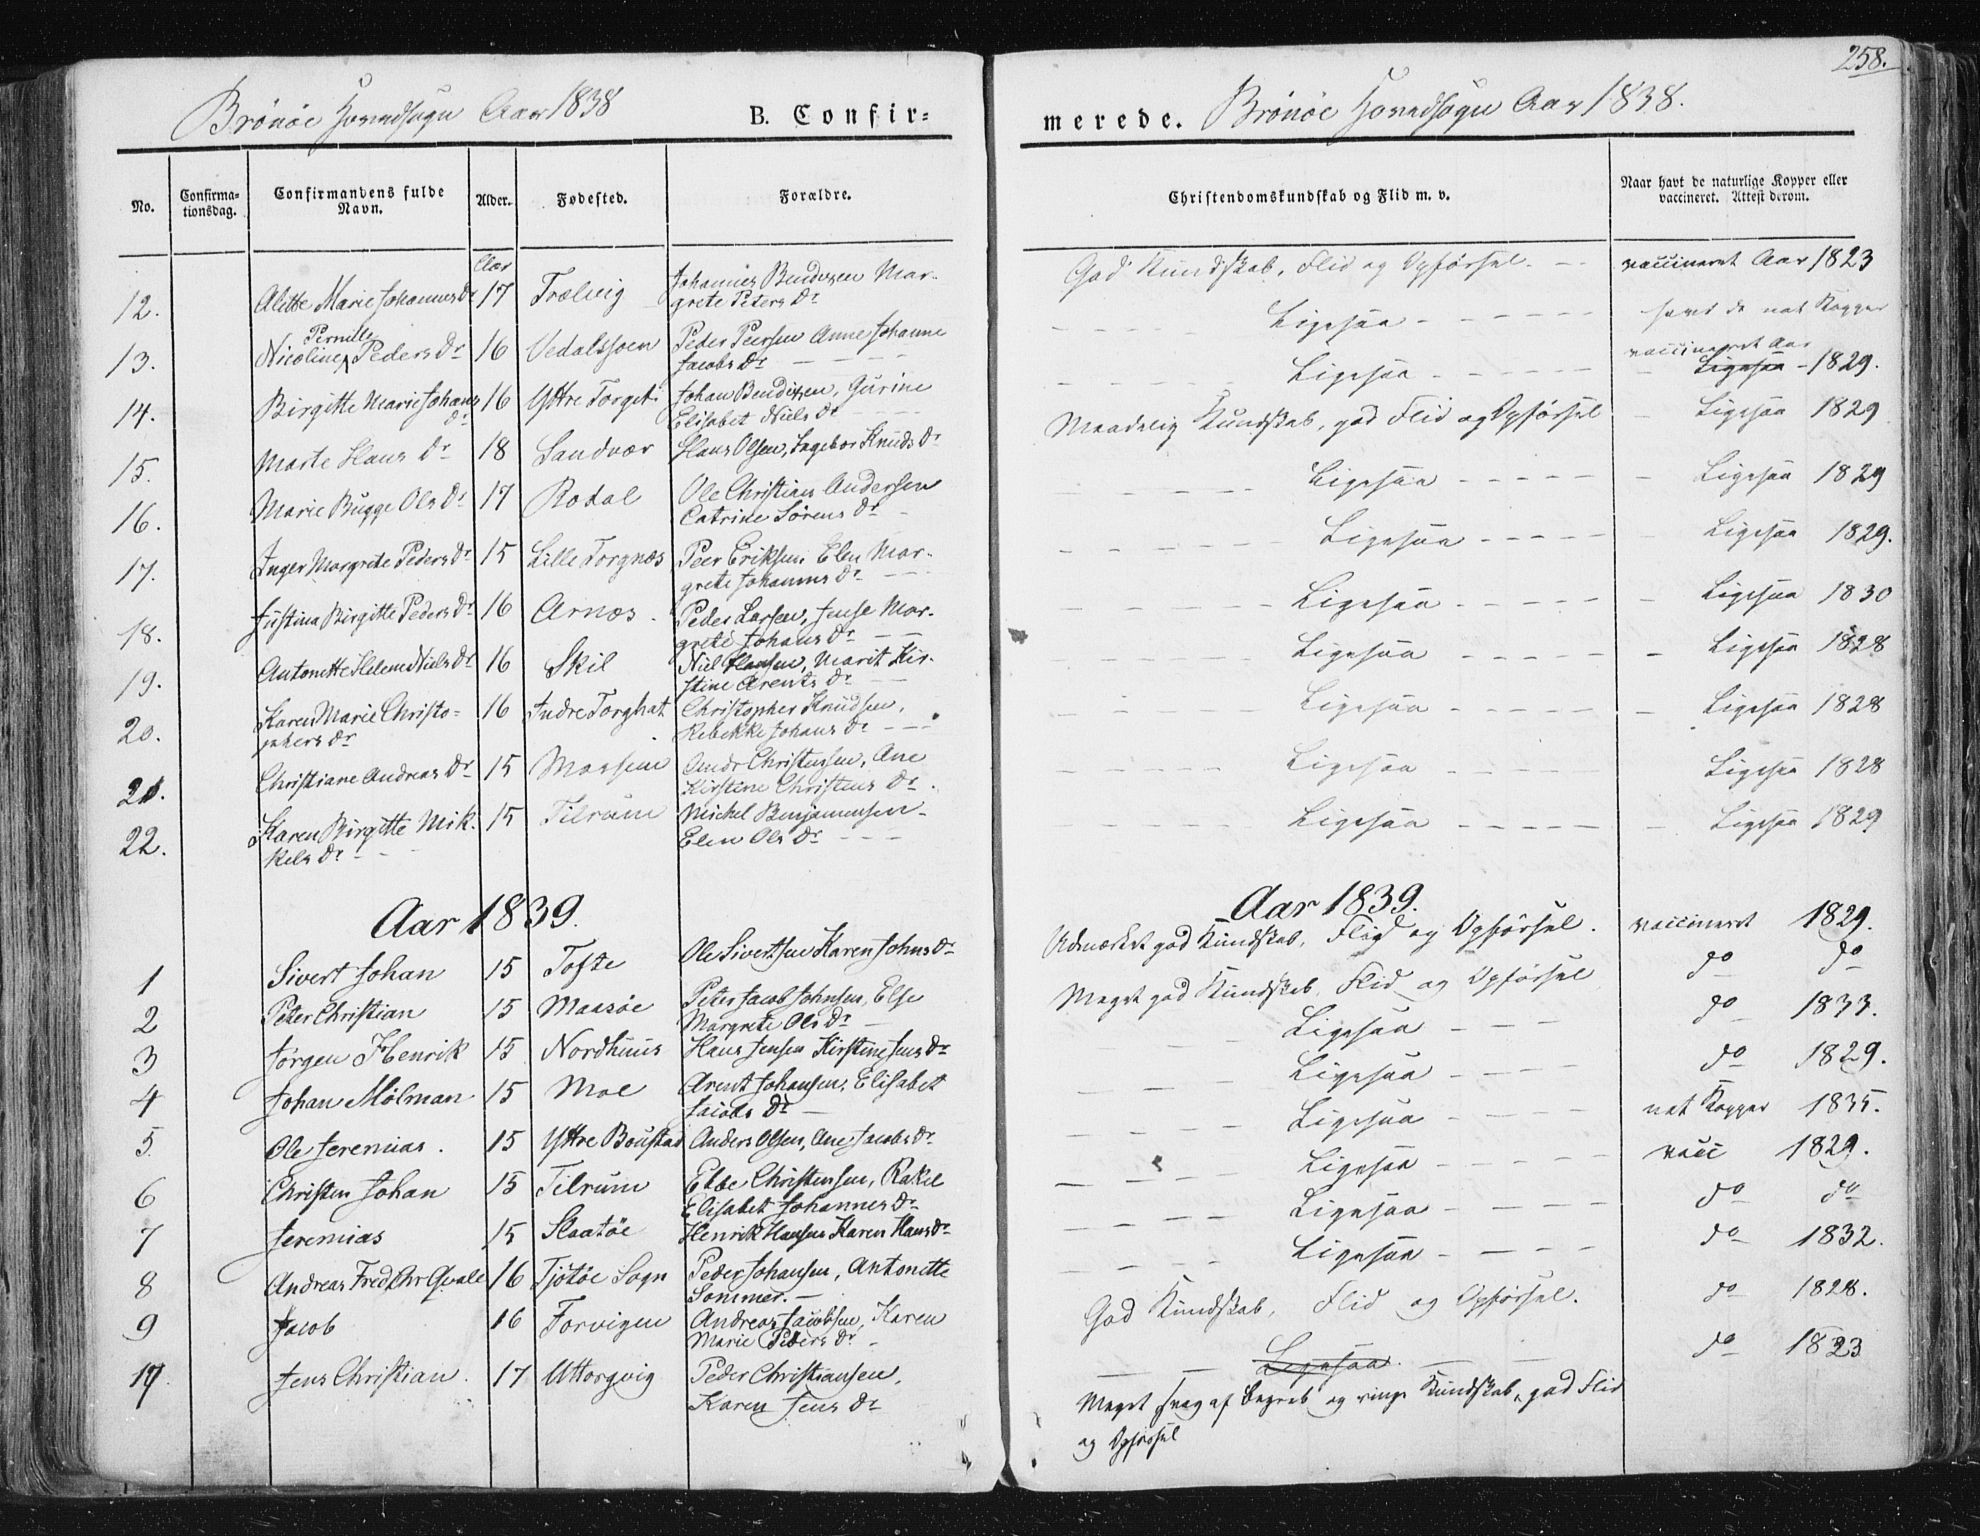 258.
Brönöe Hovedsogn Aar 1838
B. Confir=
merede. Brönöe Hovedsogn Aar 1838.
No.
Confirma-
tionsdag.
Confirmandens fulde
Navn.
Alder.
Fødested.
Forældre.
Christendomskundskab og Flid m. v.
Naar havt de naturlige Kopper eller
vaccineret. Attest derom.
Aar
12. Alette Marie Johannes Dr 17 Trælvig Johannes Bendixen Mar-
grete Peters Dr
God Kundskab, Flid og Opförsel. vaccineret Aar 1823
Pernille
13. Nicoline Peders Dr 16 Vedalssoen Peder Peersen Anne Johanne
Jacobs Dr
Ligesaa havt de nat Kopper
14. Birgitte Marie Johans 16 Yttre Torget Johan Bendixen, Gurine
Dr Elisabet Niels Dr
Ligesaa vaccineret Aar
Ligesaa 1829.
15. Marte Hans Dr 18 Sandvær Hans Olsen, Ingebor Knuds Dr
Maadelig Kundskab, god Flid og Opförsel Ligesaa 1829
16. Marie Bugge Ols Dr 17 Rodal Ole Christian Andersen
Catrine Sörens Dr
Ligesaa Ligesaa 1829
17. Inger Margrete Peders Dr 15 Lille Torgnæs Peer Eriksen, Elen Mar-
grete Johannes Dr
Ligesaa Ligesaa 1829.
18. Justina Birgitte Peders Dr 16 Arnæs. Peder Larsen, Jense Mar-
grete Johans Dr
Ligesaa Ligesaa 1830
19. Antonette Helena Niels Dr 16 Skil Niel Hansen, Marit Kir-
stine Arents Dr
Ligesaa Ligesaa 1828
20. Karen Marie Christo= 16 Indre Torghat Christopher Knudsen,
phers Dr Rebekke Johans Dr
Ligesaa Ligesaa 1828
21. Christiane Andreas Dr 15 Andr Christensen, Ane
Kirstine Christens Dr.
Ligesaa Ligesaa 1828
22. Karen Birgitte Mik- 15 Tilrum Michel Benjamensen
kels Dr Elen Ols Dr
Ligesaa Ligesaa 1829
Aar 1839.
Aar 1839.
1 Sivert Johan 15 Tofte Ole Sivertsen Karen Johns Dr
Udmærket god Kundskab, Flid og Opförsel. vaccineret 1829.
2 Peter Christian 15 Maasöe Peter Jacob Johnsen, Else
Margrete Ols Dr
Meget god Kundskab, Flid og Opförsel do do
3 Jörgen Henrik 15 Nordhuus Hans Jensen Kirstine Jens Dr
Ligesaa do 1833.
4 Johan Mölman 15 Moe Arent Johansen, Elisabet
Jacobs Dr
Ligesaa do 1829.
5. Ole Jeremias. 15 Yttre Boustad Anders Olsen, Ane Jacobs Dr.
Ligesaa nat Kopper 1835.
6 Christen Johan 15 Tilrum Ebbe Christensen, Rakel
Elisabet Johannes Dr
Ligesaa vacc 1829.
7 Jeremias 15 Slaatöe Henrik Hansen Karen Hans Dr
Ligesaa do do
8 Andreas Fred. Chr Qvale 16 Tjötöe Sogn Peder Johansen, Antonette
Sommer.
Ligesaa do 1832.
9 Jacob 16 Torvigen Andreas Jacobsen, Karen
Marie Peders Dr
God Kundskab, Flid og Opförsel. do 1828.
Jens Christian. 17 Uttorgvig Peder Christiansen,
Karen Jens Dr
Ligesaa. do 1823
Meget svag af Begreb og ringe Kundskab, god Flid
og Opförsel